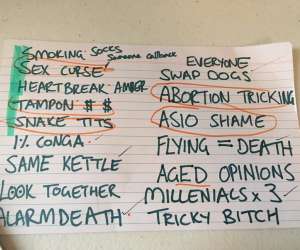 SMOKING SOCKS
Someone callback
SEX CURSE
HEARTBREAK AMBER
TAMPON $ $
SNAKE TITS
1% CONGA
SAME KETTLE
LOOK TOGETHER
ALARM DEATH
EVERYONE
SWAP DOGS
ABORTION TRICKING
ASIO SHAME
FLYING = DEATH
AGED OPINIONS
MILLENIALS x 3
TRICKY BITCH